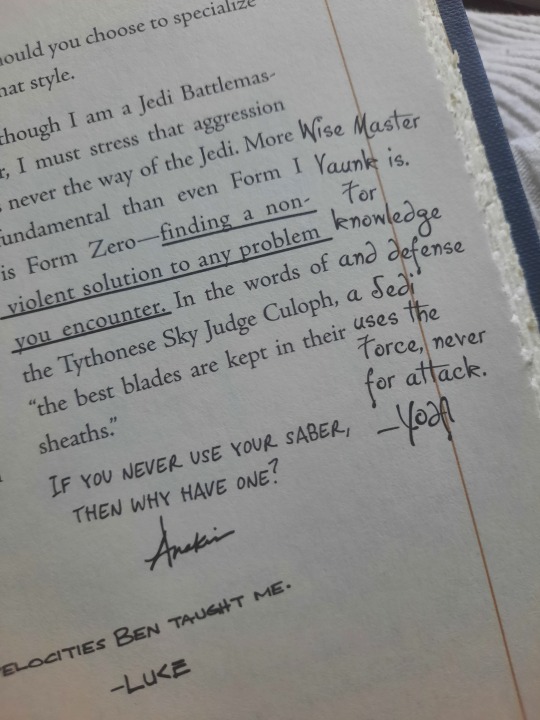 should you choose to specialize
that style.
though I am a Jedi Battlemas-
r, I must stress that aggression
never the way of the Jedi. More
fundamental than even Form I
is Form Zero—finding a non-
violent solution to any problem
you encounter. In the words of
the Tythonese Sky Judge Culoph,
“the best blades are kept in their
sheaths.”
Wise Master
Yaunk is.
For
knowledge
and defense
a Jedi
uses the
Force, never
for attack.
—Yoda
IF YOU NEVER USE YOUR SABER,
THEN WHY HAVE ONE?
Anakin
ELOCITIES BEN TAUGHT ME.
-LUKE